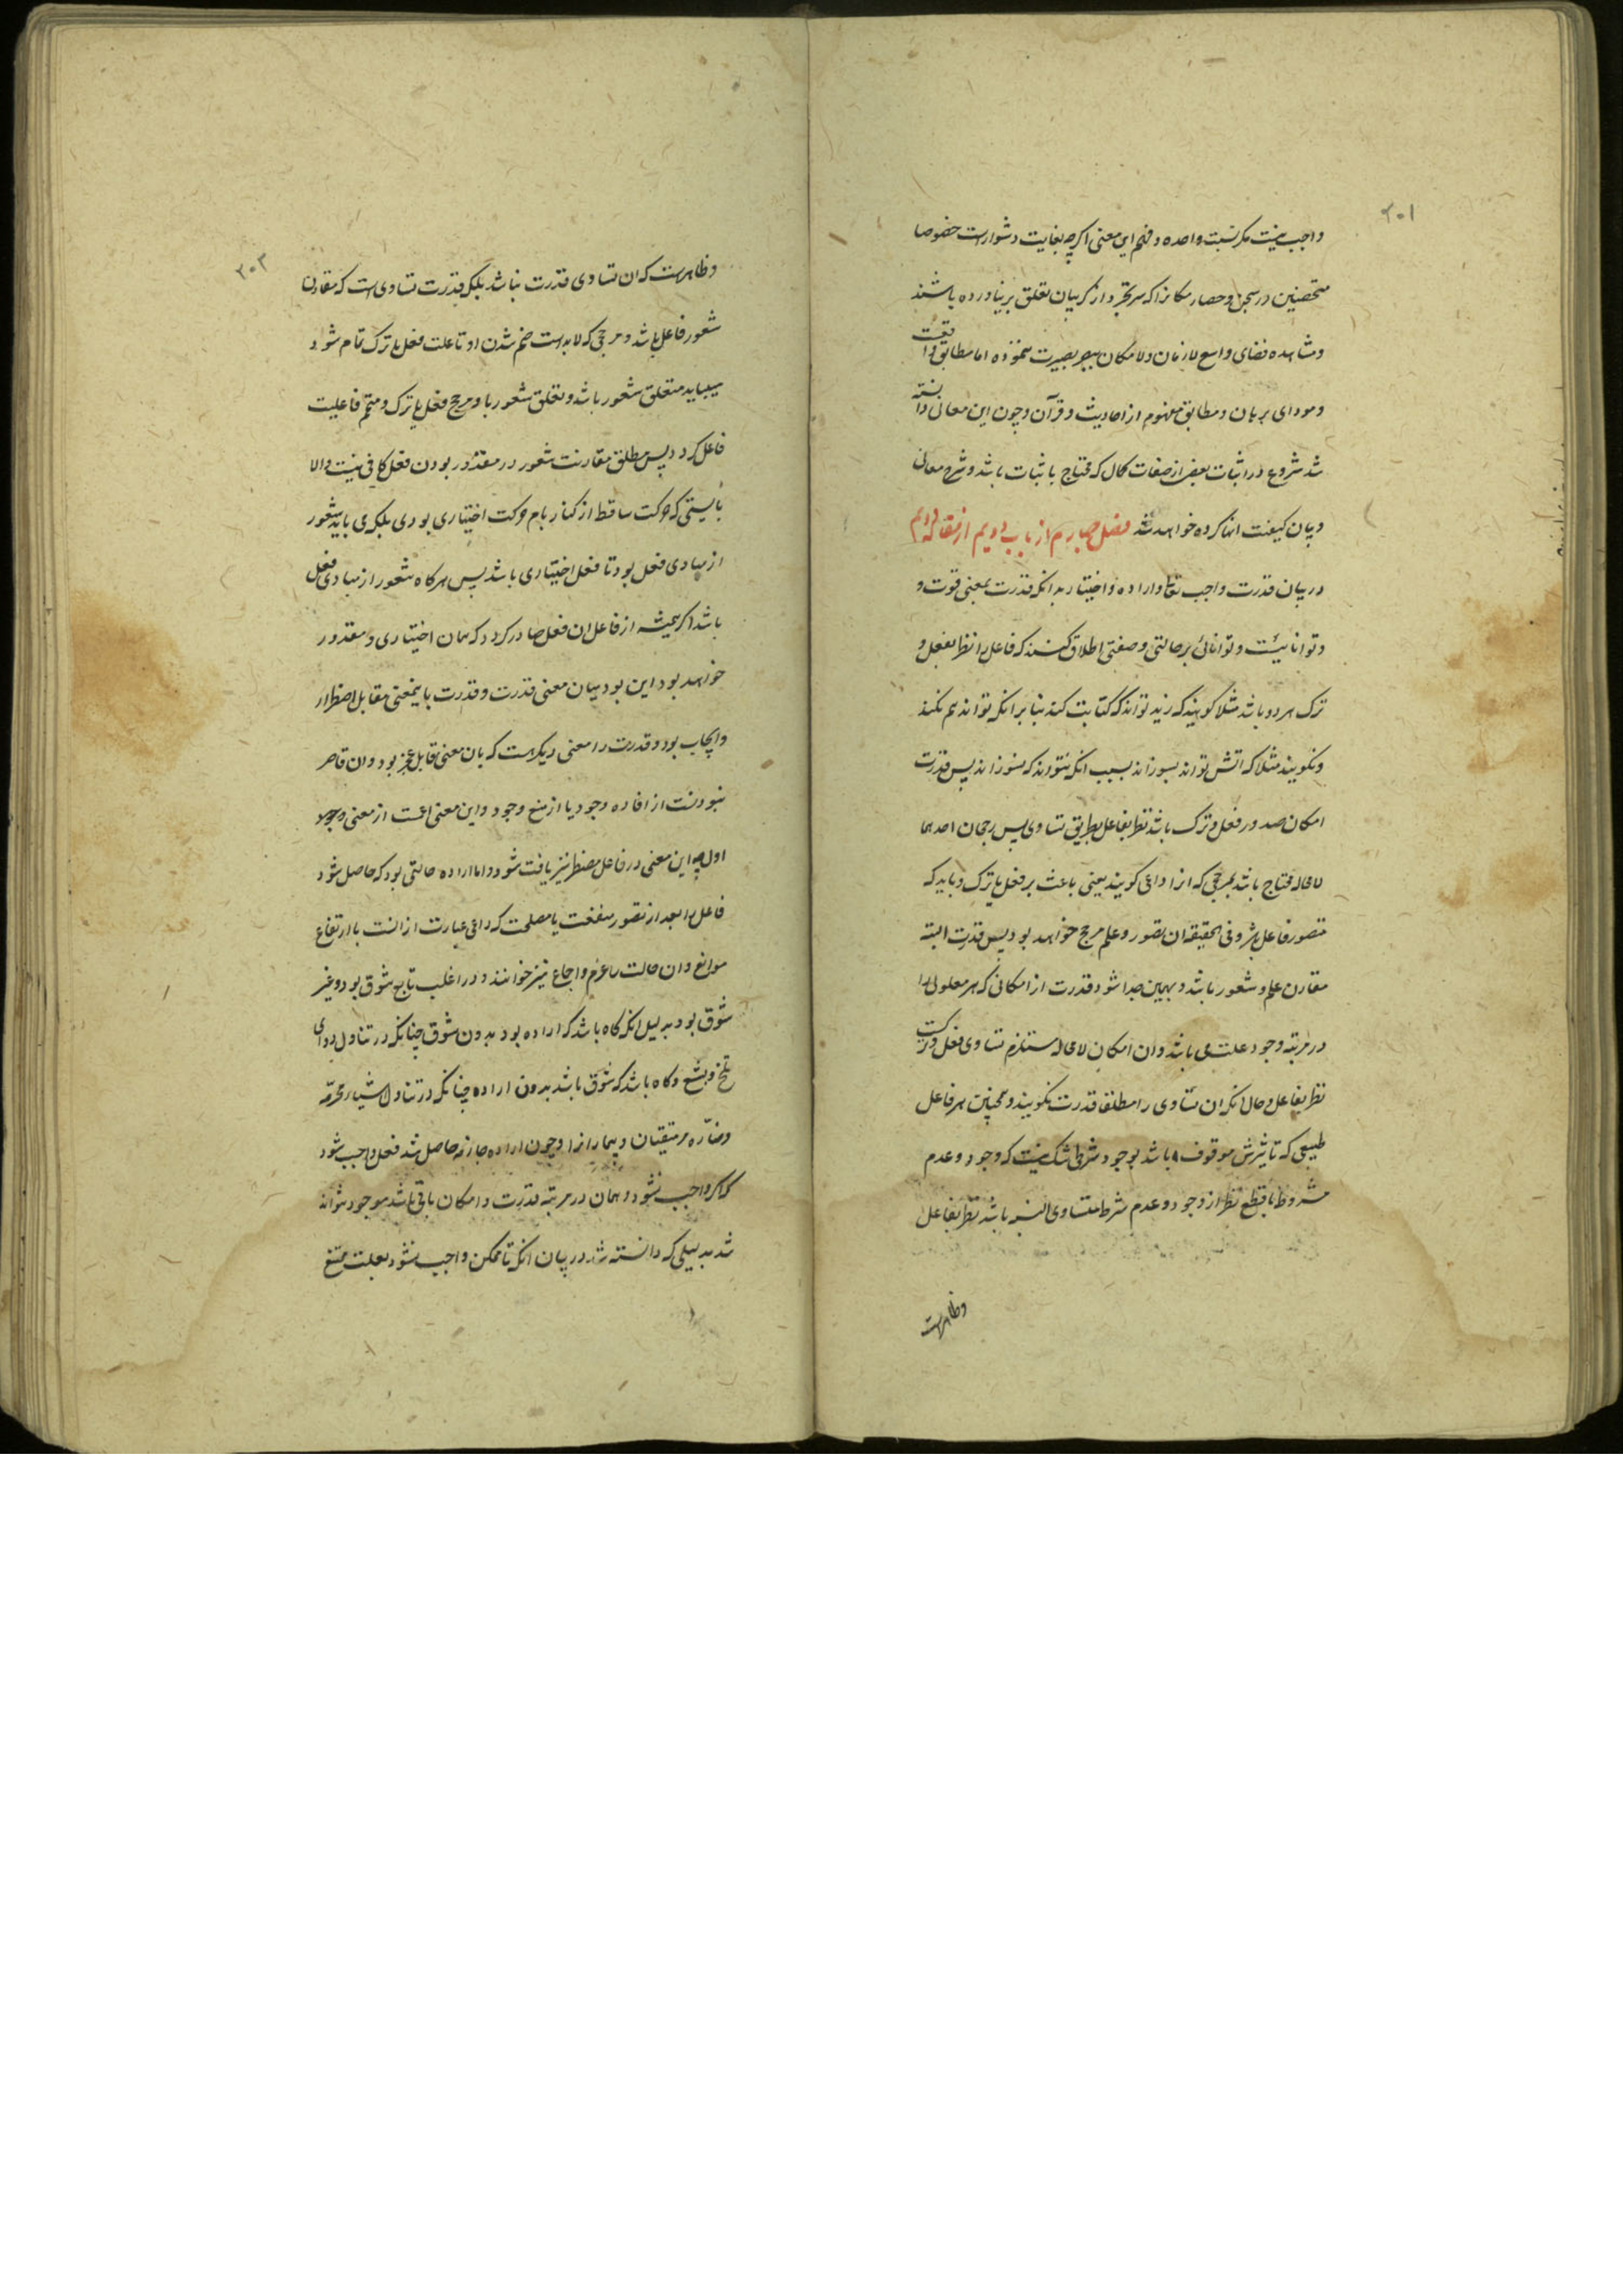 ۲۰۱
واجب نیست مکر نسبت واحده و فهم این معنی اکرچه بغایت دشوارست خصوصا
متحصنین در سجن و حصار مکانرا که سر تجرد از کریبان تعلق بر نیاورده باشند
و مشاهده فضای واسع لازمان و لامکان ببصر بصیرت ننموده اما مطابق واقعست
و مودای برهان و مطابق مفهوم از احادیث و قرآن و چون این معانی دانسته
شد شروع در اثبات بعض از صفات کمال که محتاج باثبات باشد و شرح معانی
و بیان کیفیت انها کرده خواهد شد فصل چهارم از باب دویم از مقاله دویم
در بیان قدرت واجب تعالی و اراده و اختیار بدانکه قدرت بمعنی قوت و
و توانائیست و توانائی بر حالتی و صفتی اطلاق کنند که فاعل را نظر بفعل و
ترک هر دو باشد مثلا کویند که زید تواند که کتابت کند بنا برانکه تواند هم نکند
و نکویند مثلا که اتش تواند بسوزاند بسبب انکه نتواند که نسوزاند پس قدرت
امکان صدور فعل و ترک باشد نظر بفاعل بطریق تساوی پس رجحان احدهما
لامحاله محتاج باشد بمرجحی که انرا داعی کویند یعنی باعث بر فعل یا ترک و باید که
متصور فاعل باشد و فی الحقیقه ان تصور و علم مرجح خواهد بود پس قدرت البته
مقارن علم و شعور باشد و بهمین جدا شود قدرت از امکانی که هر معلولی را
در مرتبه وجود علت می باشد و ان امکان لامحاله مستلزم تساوی فعل و ترکست
نظر بفاعل و حال انکه ان تساوی را مطلقا قدرت نکویند و همچنین هر فاعل
طبیعی که تاثیرش موقوف باشد بوجود شرطی شک نیست که وجود و عدم
مشروط با قطع نظر از وجود و عدم شرط متساوی النسبه باشد نظر بفاعل
وظاهرست
۲۰۳
وظاهرست که ان تساوی قدرت نباشد بلکه قدرت تساوی است که مقارن
شعور فاعل باشد و مرجحی که لابد است ضم شدن او تا علت فعل یا ترک تمام شود
میباید متعلق شعور باشد و تعلق شعور با و مرجح فعل یا ترک و متمم فاعلیت
فاعل کردد پس مطلق مقارنت شعور در مقدور بودن فعل کافی نیست والا
بایستی که حرکت ساقط از کنار بام حرکت اختیاری بودی بلکه می باید شعور
از مبادی فعل بود تا فعل اختیاری باشد پس هرکاه شعور از مبادی فعل
باشد اکر همیشه از فاعل ان فعل صادر کردد که همان اختیاری و مقدور
خواهد بود این بود بیان معنی قدرت و قدرت باینمعنی مقابل اضطرار
و ایجاب بود و قدرت را معنی دیکرست که بان معنی مقابل عجز بود و ان قاصر
نبودنست از افاده وجود یا از منع وجود و این معنی اعمست از معنی
اول چه این معنی در فاعل مضطر نیز یافت شود و اما اراده حالتی بود که حاصل شود
فاعل را بعد از تصور منفعت یا مصلحت که داعی عبارت از انست با ارتفاع
موانع و ان حالت را عزم و اجماع نیز خوانند و در اغلب تابع شوق بود و غیر
شوق بود بدلیل انکه کاه باشد که اراده بود بدون شوق چنانکه در تناول دوای
تلخ و بشع و کاه باشد که شوق باشد بدون اراده چنانکه در تناول اشیاء محرمه
و مضاره مر متقیان و بیمارانرا و چون اراده جازمه حاصل شد فعل واجب شود
که اکر واجب نشود و همان در مرتبه قدرت و امکان باقی باشد موجود نتواند
شد بدلیلی که دانسته شد در بیان انکه تا ممکن واجب نشود بعلت ممتنع